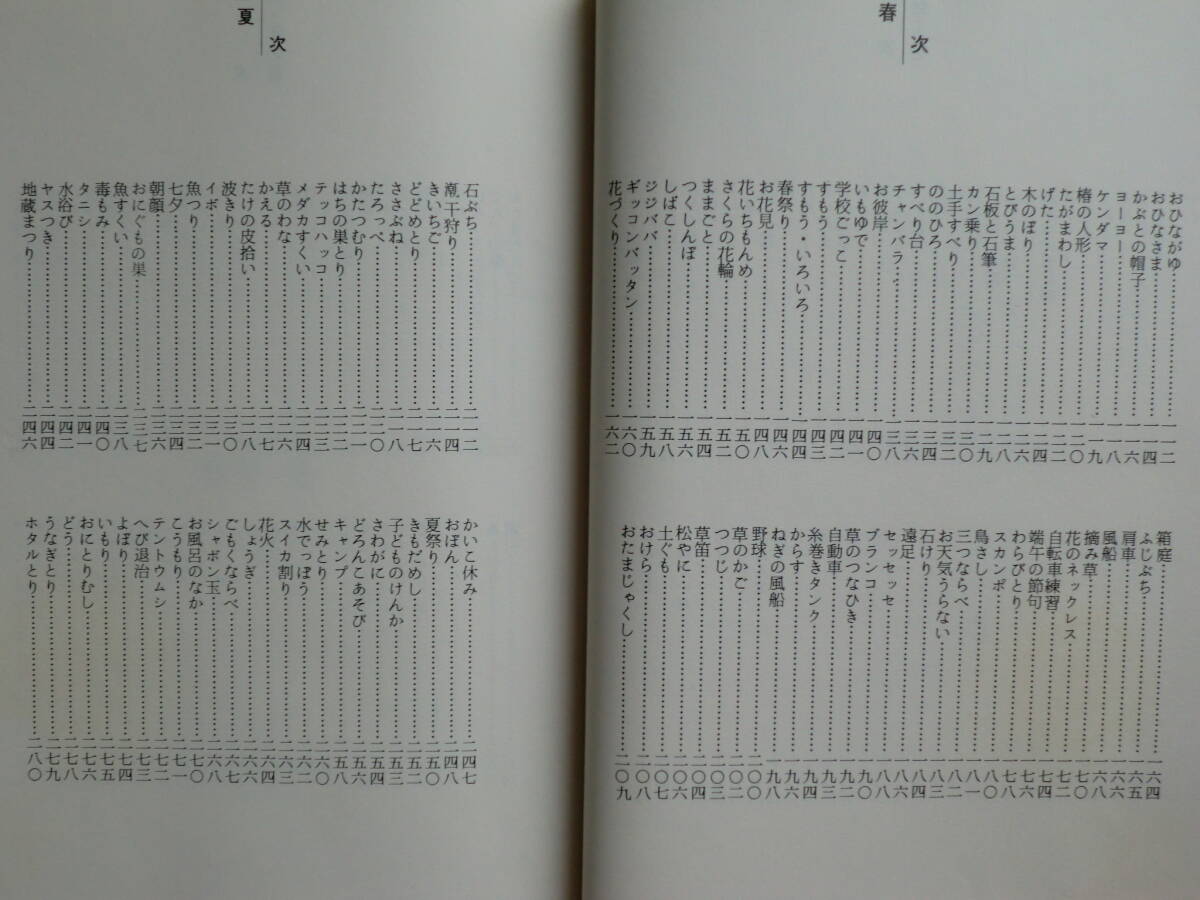 次
春
おひながゆ……一一二
おひなさま……一一四
かぶとの帽子……一一六
ヨーヨー……一一八
ケンダマ……一一九
椿の人形……一二〇
たがまわし……一二二
げた……一二四
木のぼり……一二六
とびうま……一二八
石板と石筆……一二九
カン乗り……一三〇
土手すべり……一三二
ののひろ……一三四
すべり台……一三六
チャンバラ……一三八
お彼岸……一四〇
いもゆで……一四一
学校ごっこ……一四二
すもう……一四三
すもう・いろいろ……一四四
春祭り……一四六
お花見……一四八
花いちもんめ……一五〇
さくらの花輪……一五二
ままごと……一五四
つくしんぼ……一五六
しばこ……一五八
ジジババ……一五九
ギッコンバッタン……一六〇
花づくり……一六二
箱庭……一六四
ふじぶち……一六五
肩車……一六六
風船……一六八
摘み草……一七〇
花のネックレス……一七二
自転車練習……一七四
端午の節句……一七六
わらびとり……一七八
スカンポ……一八〇
鳥さし……一八一
三つならべ……一八二
お天気うらない……一八三
石けり……一八四
遠足……一八六
セッセッセ……一八八
ブランコ……一九〇
草のつなひき……一九二
自動車……一九三
糸巻きタンク……一九四
からす……一九六
ねぎの風船……一九八
野球……二〇〇
草のかご……二〇二
つつじ……二〇三
草笛……二〇四
松やに……二〇六
土ぐも……二〇七
おけら……二〇八
おたまじゃくし……二〇九
次
夏
石ぶち……二一二
潮干狩り……二一四
きいちご……二一六
どどめとり……二一七
ささぶね……二一八
たろっぺ……二二〇
かたつむり……二二一
はちの巣とり……二二二
テッコハッコ……二二三
メダカすくい……二二四
草のわな……二二六
かえる……二二七
たけの皮拾い……二二八
波きり……二三〇
イボ……二三一
魚つり……二三二
七夕……二三四
朝顔……二三六
おにぐもの巣……二三七
魚すくい……二三八
毒もみ……二四〇
タニシ……二四一
水浴び……二四二
ヤスつき……二四四
地蔵まつり……二四六
かいこ休み……二四七
おぼん……二四八
夏祭り……二五〇
きもだめし……二五二
子どものけんか……二五三
さわがに……二五四
どろんこあそび……二五六
キャンプ……二五八
せみとり……二六〇
水でっぽう……二六二
スイカ割り……二六三
花火……二六四
しょうぎ……二六六
ごもくならべ……二六七
シャボン玉……二六八
お風呂のなか……二七〇
こうもり……二七一
テントウムシ……二七二
へび退治……二七三
よぼり……二七四
いもり……二七五
おにとりむし……二七六
どう……二七八
うなぎとり……二七九
ホタルとり……二八〇